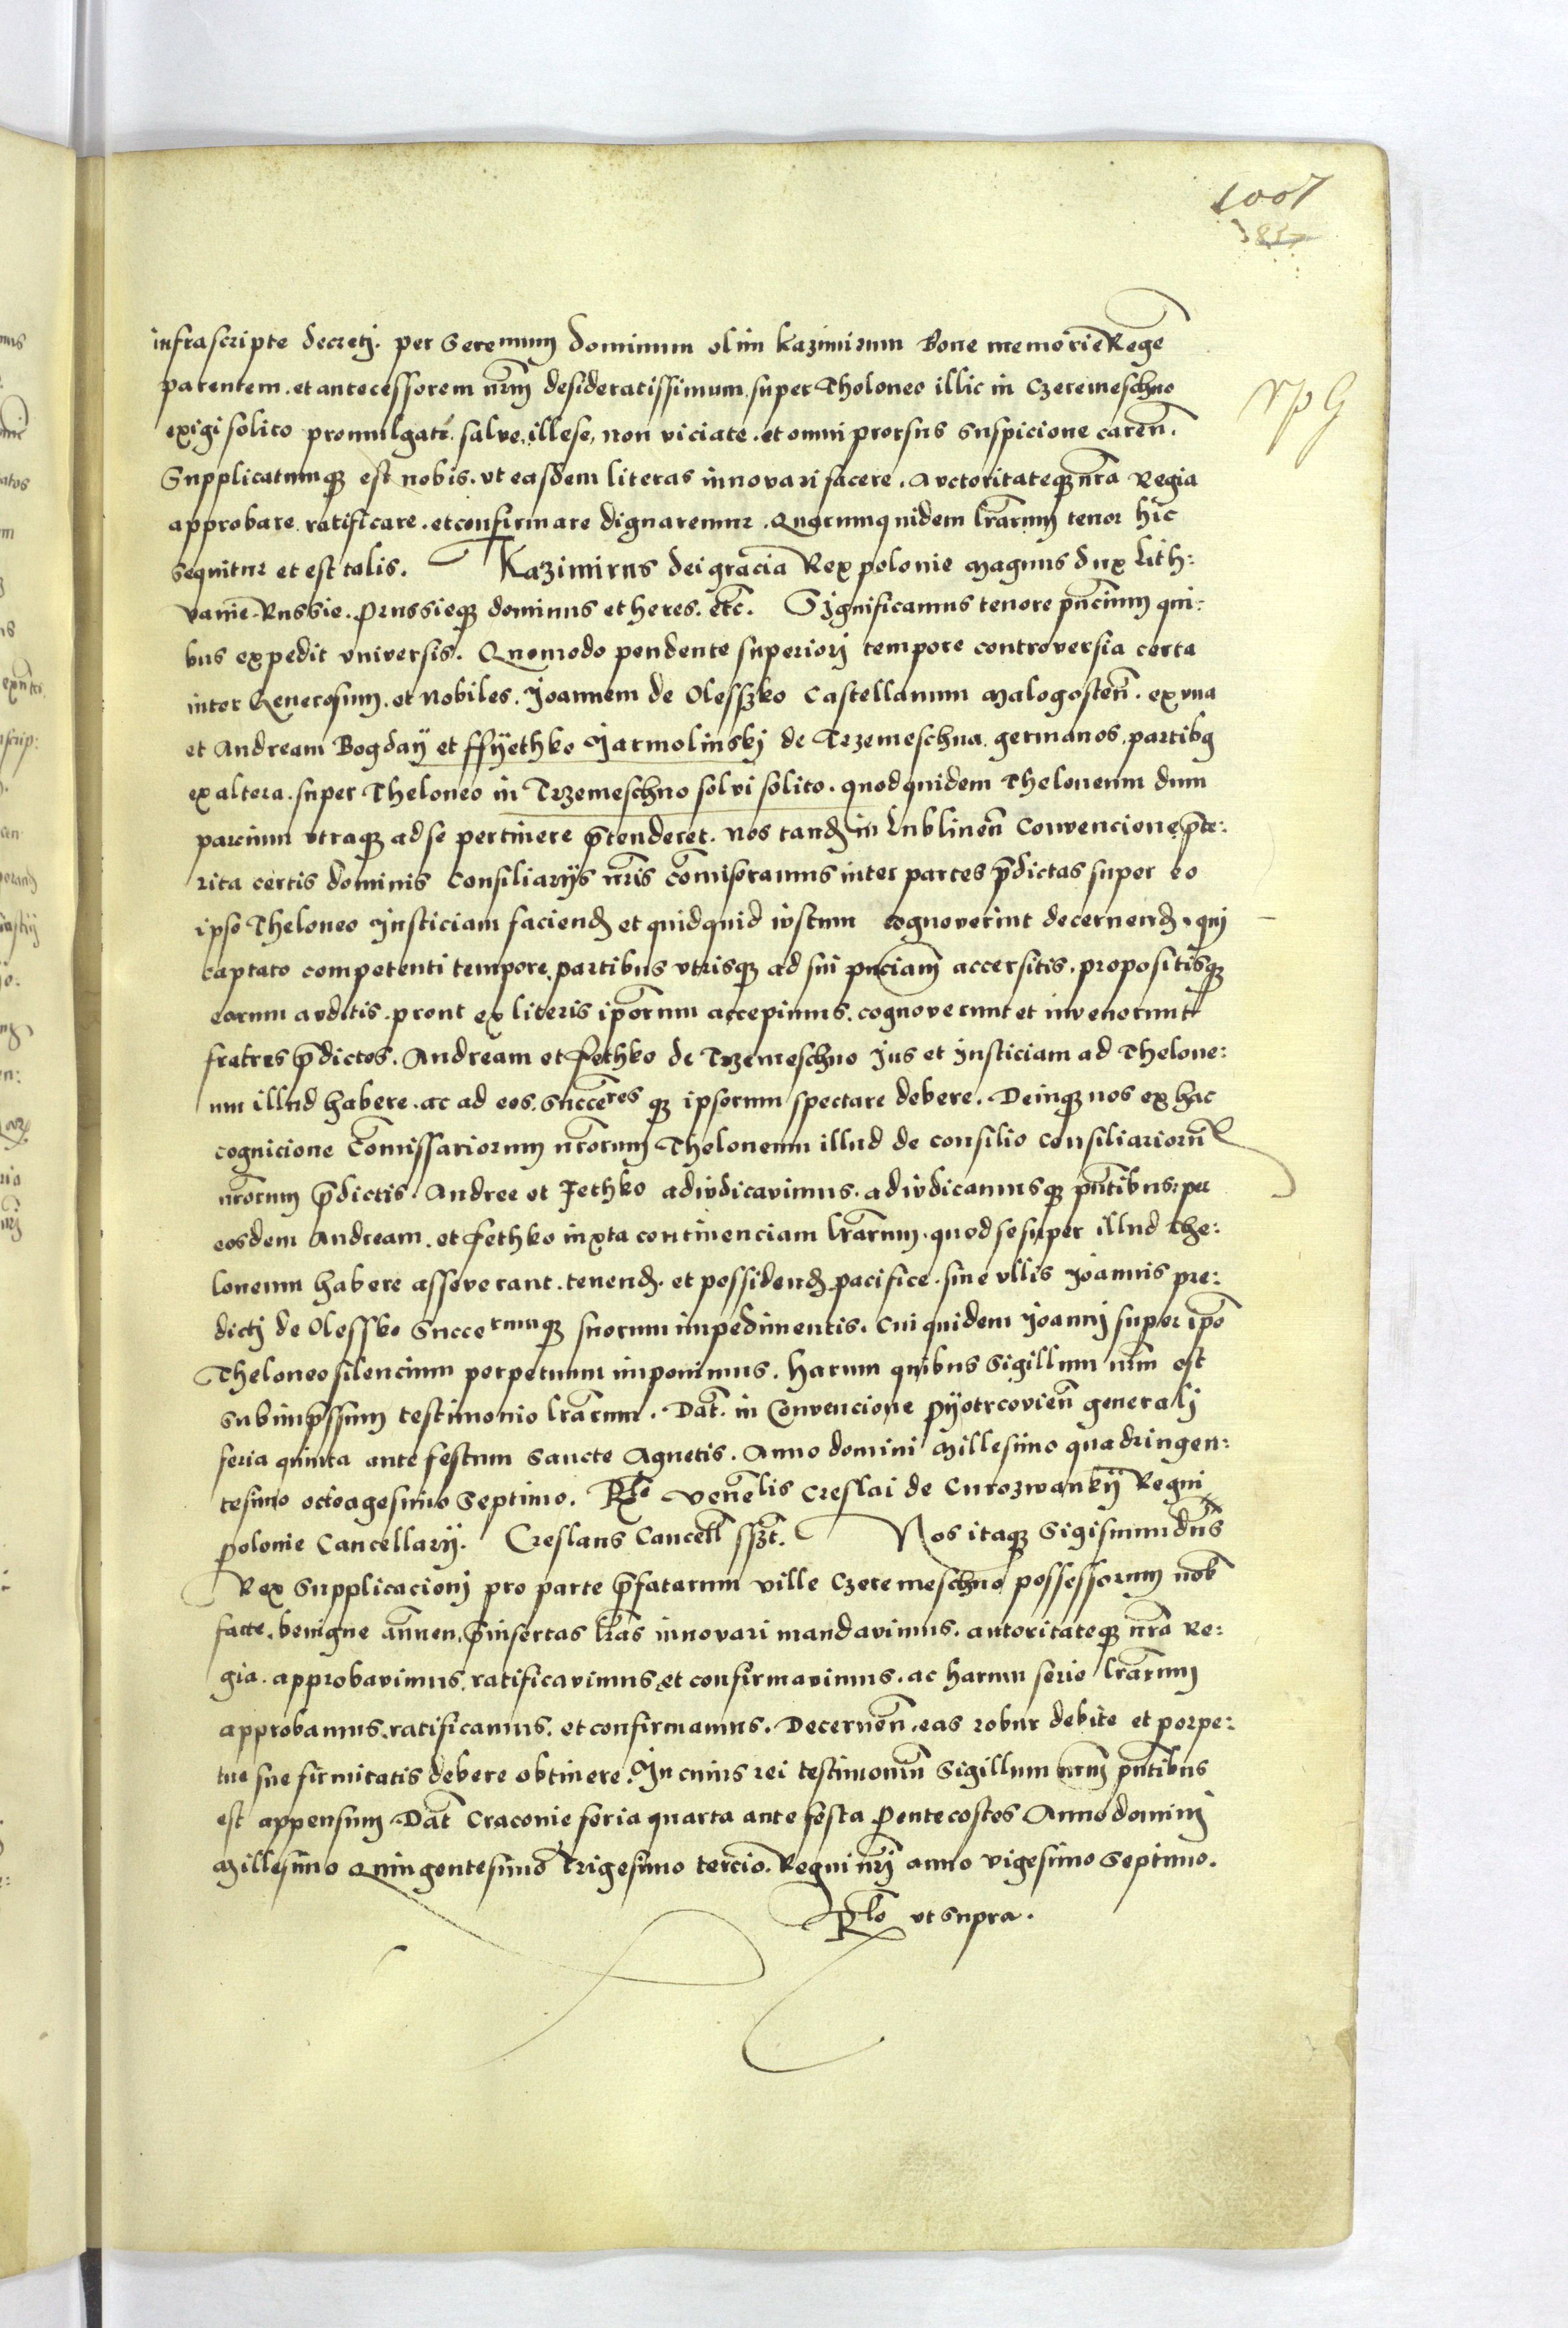 1007
infrascripte decretj. per Seremum dominum olim kazimirum Bone memoriē Regē
parentem. et antecessorem nr̄m desideratissimum. super Tholoneo illic in Czeremeschno
exigi solito promulgatē. salve, illese, non viciate. et omni prorsus suspicione carēn.
Supplicatumqꝫ est nobis. vt easdem literas innovari facere. Avctoritateqꝫ nr̄a Regia
approbare. ratificare. et confirmare dignaremur. Quarumquidem lr̄arum tenor hic
sequitur et est talis. Kazimirus dei gracia Rex polonie Magnus dux Lith:
vanie. Russie. Prussieqꝫ dominus et heres. etc̄. Significamus tenore pn̄cium qui:
bus expedit vniversis. Quomodo pendente superiorj tempore controversia certa
inter Generosum. et Nobiles. Joannem de Olesszko Castellanum Malogostēn. ex vna
et Andream Bogdaÿ et ffÿethko Jarmolinskj de Trzemeschna. germanos. partibꝫ
ex altera. super Theloneo in Trzemeschno solvi solito. quodquidem Theloneum dum
parcium vtraqꝫ ad se pertinere p̄tenderet. Nos tandꝫ in Lublinēn Convencione p̄te:
rita certis dominis Consiliarÿs nr̄is com̄iseramus inter partes p̄dictas super eo
ipso Theloneo Justiciam faciendꝫ et quidquid ivstum cognoverint decernendꝫ. quj
captato competenti tempore. partibus vtrisqꝫ ad sui pn̄ciam accersitis. propositisqꝫ
eorum avditis. prout ex literis ip̄orum accepimus. cognoverunt et invenerunt
fratres p̄dictos. Andream et Fethko de Trzemeschno Jus et Justiciam ad Thelone:
um illud habere. ac ad eos. Succēres qꝫ ipsorum spectare debere. Deinqꝫ nos ex hac
cognicione Com̄issariorum nr̄orum Theloneum illud de consilio Consiliariorum
nr̄orum p̄dictis. Andree et Fethko adivdicavimus. adivdicamusqꝫ pn̄tibus: per
eosdem Andream. et Fethko iuxta continenciam lr̄arum. quod se super illud The:
loneum habere asseverant. tenendꝫ. et possidendꝫ pacifice. sine vllis Joannis pre:
dictj de Olessko Succerumqꝫ suorum impedimentis. Cui quidem Joannj super ip̄o
Theloneo silencium perpetuum imponimus. Harum quibus Sigillum nr̄m est
subimp̄ssum testimonio lr̄arum. Dat̄. in Convencione Pÿotrcoviēn generalj
feria quinta ante festum Sancte Agnetis. Anno domini Millesimo quadringen:
tesimo octoagesimo Septimo. Rlō Venēlis Creslai de Curozwankÿ Regni
polonie Cancellarÿ. Creslaus Cancell̄ sszt̄. Nos itaqꝫ Sigismundus
Rex Supplicacionj pro parte p̄fatarum ville Czeremeschno possessorum nob̄
facte. benigne an̄uen. p̄insertas lr̄as innovari mandavimus. autoritateqꝫ nr̄a Re:
gia. approbavimus. ratificavimus. et confirmavimus. ac harum serie lr̄arum
approbamus. ratificamus. et confirmamus. Decernēn. eas robur debite et perpe:
tue sue firmitatis debere obtinere. In cuius rei testimonium Sigillum nr̄m pn̄tibus
est appensum Dat̄ Cracovie feria quarta ante festa Pentecostes Anno dominj
Millesimo Quingentesimo Trigesimo tercio. Regni nr̄j anno vigesimo Septimo.
Rlō vt supra.